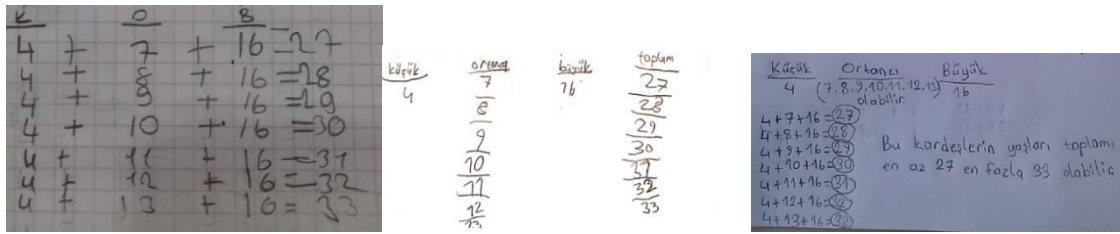 K O B
4 + 7 + 16 = 27
4 + 8 + 16 = 28
4 + 9 + 16 = 29
4 + 10 + 16 = 30
4 + 11 + 16 = 31
4 + 12 + 16 = 32
4 + 13 + 16 = 33
küçük ortanca büyük toplam
4 7 16 27
8 28
9 29
10 30
11 31
12 32
13 33
Küçük Ortancı Büyük
4 (7.8.9.10.11.12.13) 16
olabilir
4+7+16=27
4+8+16=28
4+9+16=29
4+10+16=30
4+11+16=31
4+12+16=32
4+13+16=33
Bu kardeşlerin yaşları toplamı
en az 27 en fazla 33 olabilir